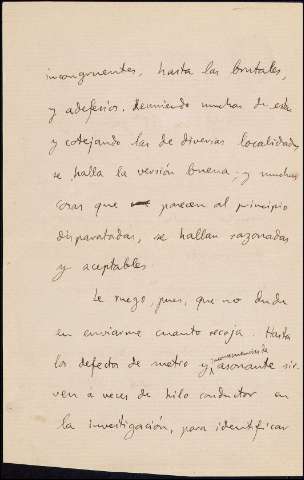 incongruentes, hasta las brutales,
y adefesios. Reuniendo muchas de estas
y cotejando las de diversas localidades
se halla la versión buena; y muchas
cosas que parecen al principio
disparatadas, se hallan razonadas
y aceptables.
Le ruego, pues, que no dude
en enviarme cuanto recoja. Hasta
los defectos de metro y asonante sir-
ven a veces de hilo conductor en
la investigación, para identificar